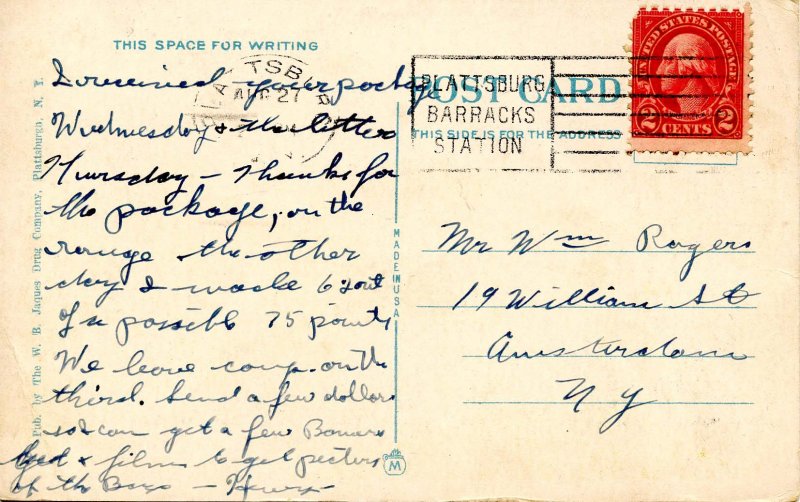 THIS SPACE FOR WRITING
I received your package
Wednesday & the letter
Thursday – Thanks for
the package, on the
range the other
day I made 6 out
of a possible 75 points
We leave camp on the
third. Send a few dollars
so I can get a few
& films to get pictures
of the Boys –
POST CARD
THIS SIDE IS FOR THE ADDRESS
PLATTSBURG
BARRACKS
STATION
UNITED STATES POSTAGE
2 CENTS 2
Mr Wm Rogers
19 William St
Amsterdam
N Y
MADE IN USA
M
Pub. by The W. B. Jaques Drug Company, Plattsburgh, N. Y.